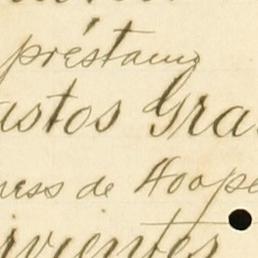 préstamo
astos Gra
ness de Hoope
rvientes